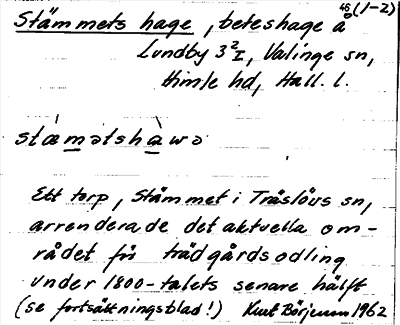 46 (1-2)
Stämmets hage, beteshage å
Lundby 3²I, Valinge sn,
Himle hd, Hall. l.
stämətshawə
Ett torp, Stämmet i Träslövs sn,
arrenderade det aktuella om-
rådet för trädgårdsodling
under 1800-talets senare hälft
(se fortsättningsblad!) Kurt Börjesson 1962